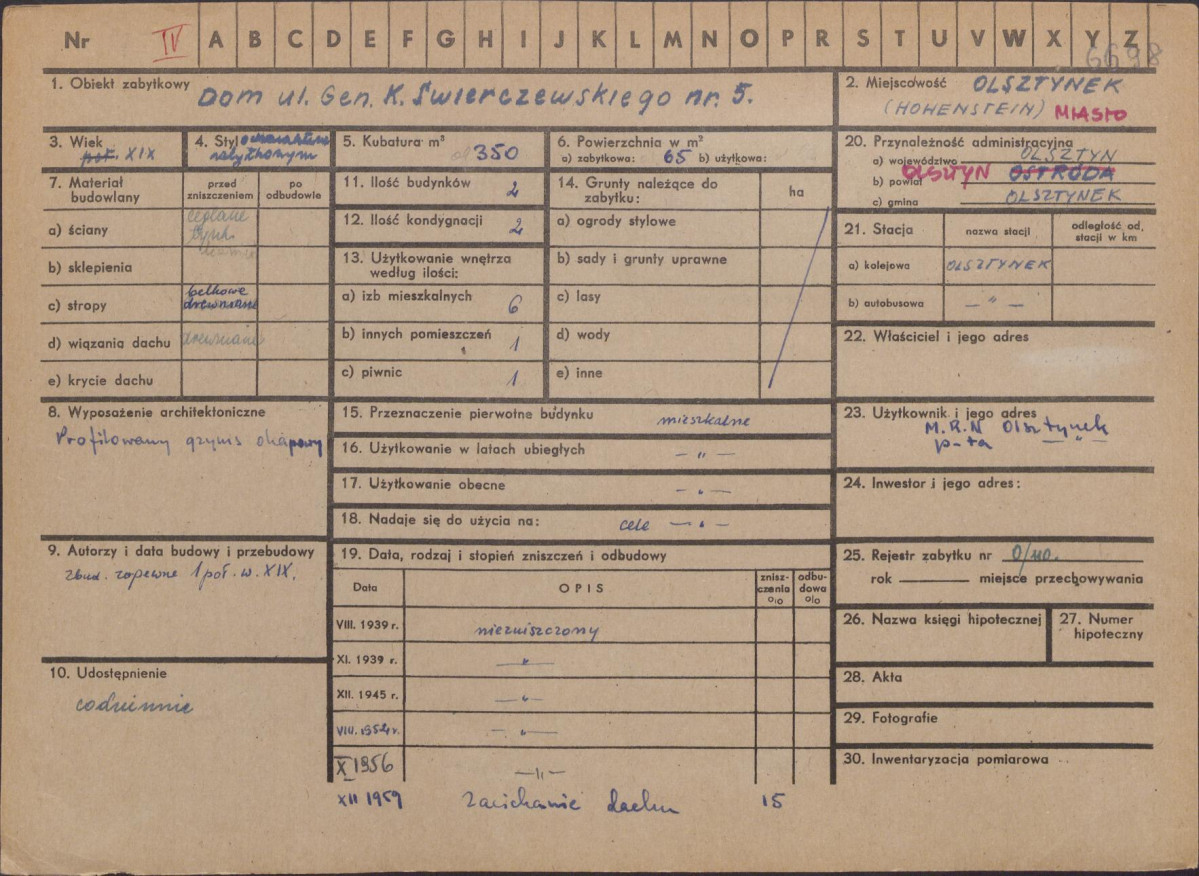 Nr IV A B C D E F G H I J K L M N O P R S T U V W X Y Z
6698
1. Obiekt zabytkowy Dom ul. Gen. K. Świerczewskiego nr. 5.
2. Miejscowość OLSZTYNEK
(HOHENSTEIN) MIASTO
3. Wiek
poł. XIX
4. Styl
5. Kubatura m³
350
6. Powierzchnia w m²
a) zabytkowa: 65 b) użytkowa:
20. Przynależność administracyjna
a) województwo OLSZTYN
b) powiat OLSZTYN OSTRÓDA
c) gmina OLSZTYNEK
7. Materiał budowlany
przed zniszczeniem
po odbudowie
a) ściany ceglane
tynk.
b) sklepienia
c) stropy belkowe
drewniane
d) wiązania dachu drewniane
e) krycie dachu
11. Ilość budynków 2
12. Ilość kondygnacji 2
13. Użytkowanie wnętrza
według ilości:
a) izb mieszkalnych 6
b) innych pomieszczeń 1
c) piwnic 1
14. Grunty należące do
zabytku:
ha
a) ogrody stylowe
b) sady i grunty uprawne
c) lasy
d) wody
e) inne
21. Stacja
nazwa stacji
odległość od,
stacji w km
a) kolejowa OLSZTYNEK
b) autobusowa — " —
22. Właściciel i jego adres
8. Wyposażenie architektoniczne
Profilowany gzyms okapowy
15. Przeznaczenie pierwotne budynku mieszkalne
16. Użytkowanie w latach ubiegłych — " —
17. Użytkowanie obecne — " —
18. Nadaje się do użycia na: cele — " —
23. Użytkownik i jego adres
M.R.N Olsztynek
p-ta — " —
24. Inwestor i jego adres:
9. Autorzy i data budowy i przebudowy
zbud. zapewne 1 poł. w. XIX.
10. Udostępnienie
codziennie
19. Data, rodzaj i stopień zniszczeń i odbudowy
Data
OPIS
znisz-
czenia
o/o
odbu-
dowa
o/o
VIII. 1939 r. niezniszczony
XI. 1939 r. — " —
XII. 1945 r. — " —
VIII. 1952 r. — " —
X 1956 — " —
XII 1959 Zaciekanie dachu 15
25. Rejestr zabytku nr
rok miejsce przechowywania
26. Nazwa księgi hipotecznej
27. Numer
hipoteczny
28. Akta
29. Fotografie
30. Inwentaryzacja pomiarowa